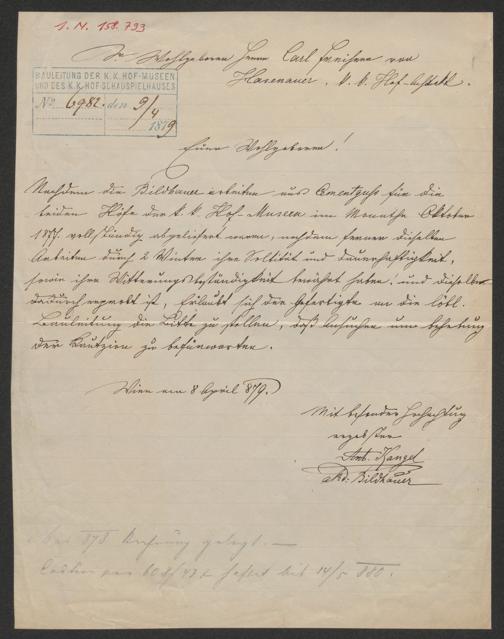 I. N. 158.793
Sr. Wohlgeboren Herrn Carl Freiherr von
Hasenauer, k. k. Hof-Architekt.
BAULEITUNG DER K. K. HOF-MUSEEN
UND DES K. K. HOF-SCHAUSPIELHAUSES
No. 6982. den 9/4
1879
Euer Wohlgeboren!
Nachdem die Bildhauerarbeiten aus Cementguß für die
beiden Höfe der k. k. Hof-Museen im Monathe Oktober
1877 vollständig abgeliefert waren, nachdem ferner dieselben
Arbeiten durch 2 Winter ihre Solidität und Dauerhaftigkeit,
sowie ihre Witterungsbeständigkeit bewährt haben, und dieselben
dadurch erprobt ist, erlaubt sich der Gefertigte an die löbl.
Bauleitung die Bitte zu stellen, daß Ansuchen um Behebung
der Kaution zu befürworten.
Wien am 8 April 879.
Mit besonderer Hochachtung
ergebenster
Ant. Kangel
akd. Bildhauer
bei 878 Rechnung gelegt. —
haftet bis 14/5 880.